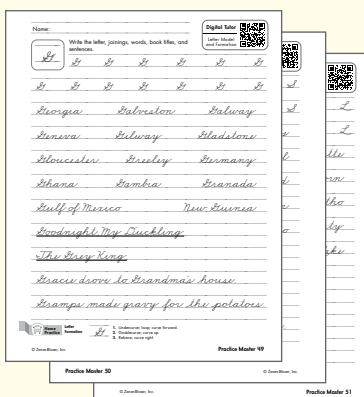 Name:
Digital Tutor
Letter Model
and Formation
Write the letter, joinings, words, book titles, and
sentences.
G
G G G G G G
G G G G G G G
Georgia Galveston Galway
Geneva Gilway Gladstone
Gloucester Greeley Germany
Ghana Gambia Granada
Gulf of Mexico New Guinea
Goodnight My Duckling
The Grey King
Gracie drove to Grandma's house.
Gramps made gravy for the potatoes.
Home
Practice
Letter
Formation
G
1. Undercurve; loop; curve forward.
2. Doublecurve; curve up.
3. Retrace; curve right.
© Zaner-Bloser, Inc.
Practice Master 49
S
S
Practice Master 50
© Zaner-Bloser, Inc.
L
L
tte
rn
tho
ty
ke
© Zaner-Bloser, Inc.
Practice Master 51